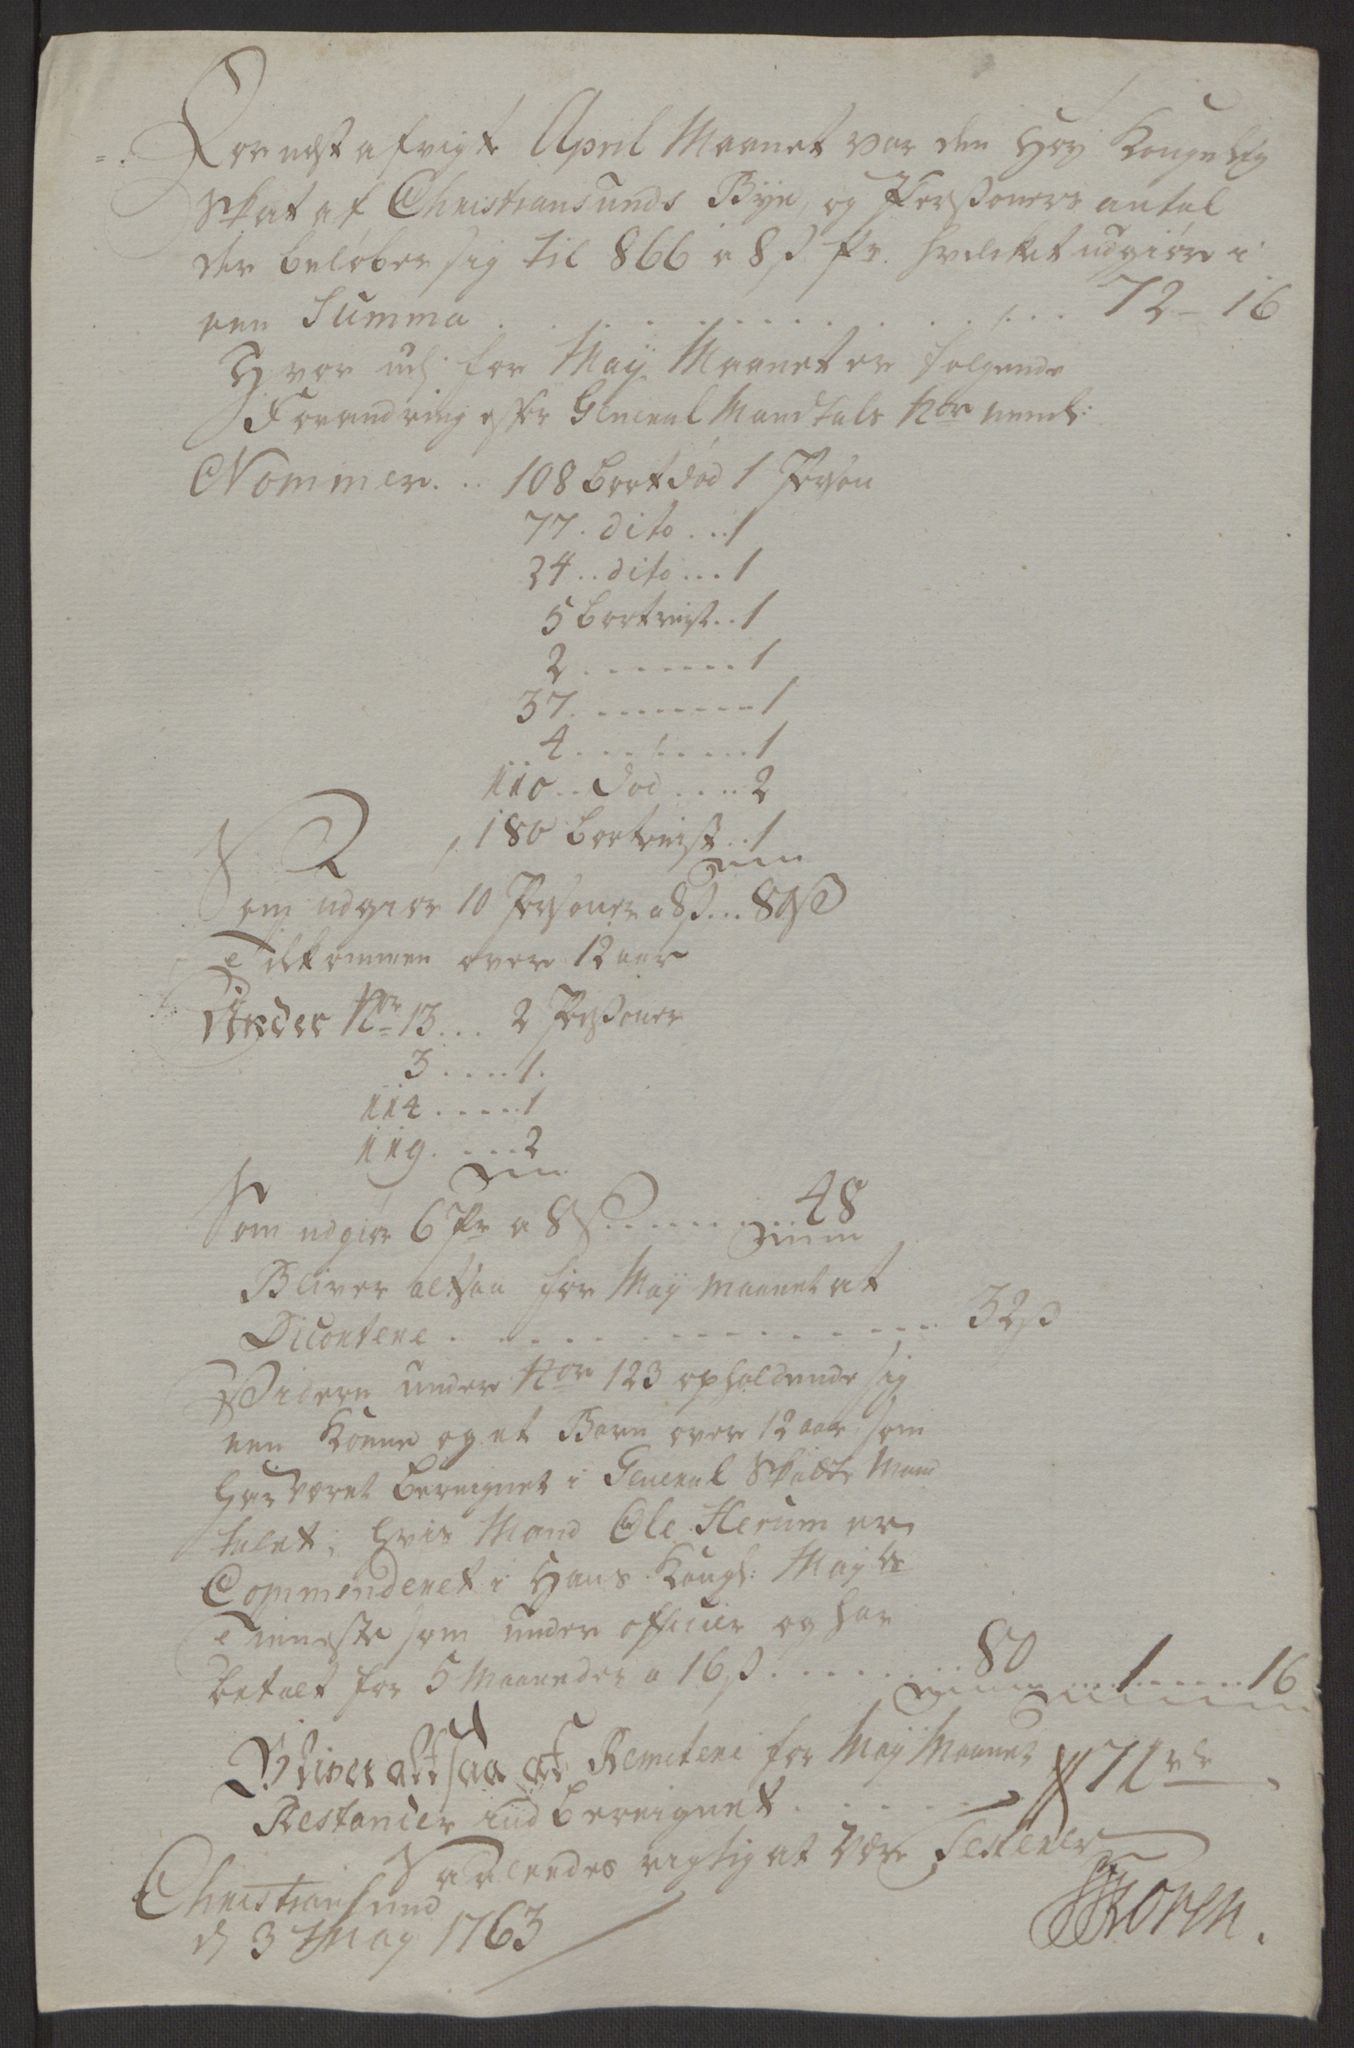 For nest afvigte April Maanet var den Høy Kongelig
Skat af Christiansunds Bye, og Perßoners antal
der beløber sig til 866 a 8 s. pr. hvilket udgiør i
een Summa . . . . . . . . . . . . 72 - 16
Hvor udj for Maij Maanet er følgende
Forandring efter General Mandtals Nor neml:
Nommer. .. 108 bortdød 1 Person
77. dito ... 1
24 .. dito ... 1
5 bortreist .. 1
2 . . . . . . . 1
37 . . . . . . . 1
4 . . . . . . . 1
110 .. død .... 2
180 bortreist .. 1
Som udgiør 10 Personer a 8 s ... 80 s
Tilkommen over 12 aar
Under Nr 13 ... 2 Perßoner
3 .... 1.
114 ..... 1
119. .... 2
Som udgiør 6 Pr a 8 s ....... 48
Bliver altsaa for Maij maanet at
Dicortere . . . . . . . . . . . . 32 s
Videre under Nor 123 opholdende sig
een Konne og et Barn over 12 aar som
har været bereignet i General Skatte Mand
talet, hvis Mand Ole Herum er
Commenderet i Hans Kongl: Mayts
Tienneste som under officier og har
betalt for 5 Maaneder a 16 s ....... 80 ... 1 ...... 16
Bliver altsaa at Remitere for Maij Maanet
Restancer indbereignet . . . . . . 71 rd
Saaledes rigtig at være Testerer
Christiansund
d 3 May 1763
Koren.